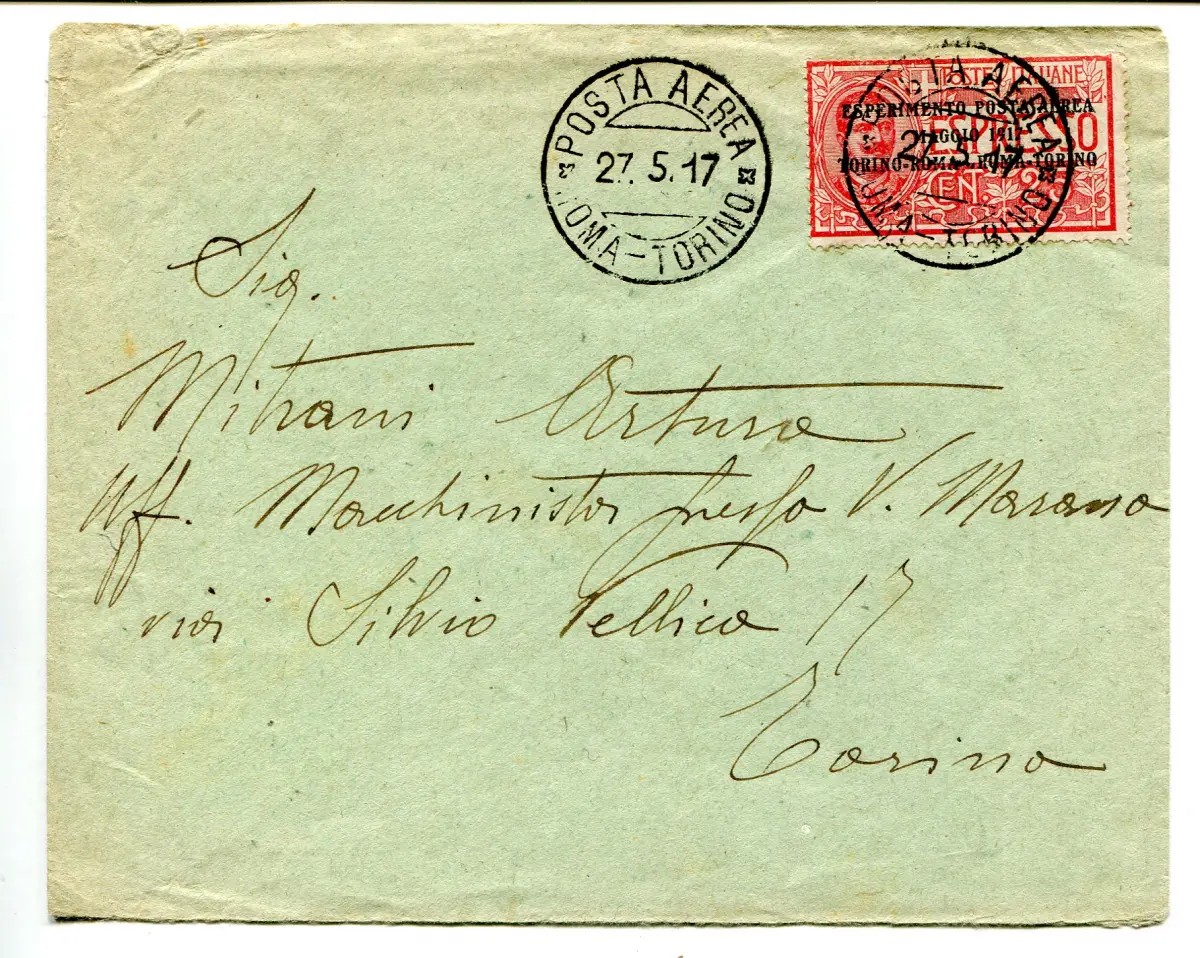 POSTA AEREA
27.5.17
ROMA-TORINO
POSTE ITALIANE
ESPERIMENTO POSTA AEREA
MAGGIO 1917
TORINO-ROMA · ROMA-TORINO
ESPRESSO
CENT. 25
POSTA AEREA
27.5.17
ROMA-TORINO
Sig.
Mitrani Arturo
Uff. Macchinista presso V. Marano
via Silvio Pellico 17
Torino